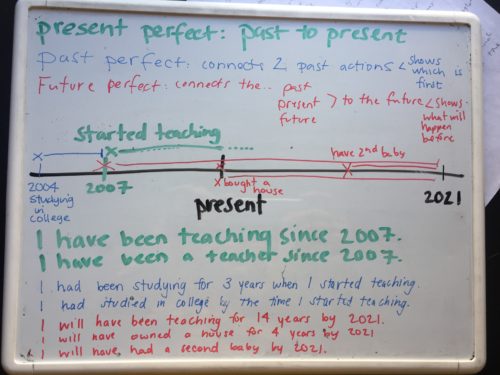 present perfect: past to present
Past perfect: connects 2 past actions < shows which is first
Future perfect: connects the.. past present future > to the future < shows what will happen before
started teaching
have 2nd baby
2004 studying in college
2007
bought a house
present
2021
I have been teaching since 2007.
I have been a teacher since 2007.
I had been studying for 3 years when I started teaching.
I had studied in college by the time I started teaching.
I will have been teaching for 14 years by 2021.
I will have owned a house for 4 years by 2021
I will have had a second baby by 2021.